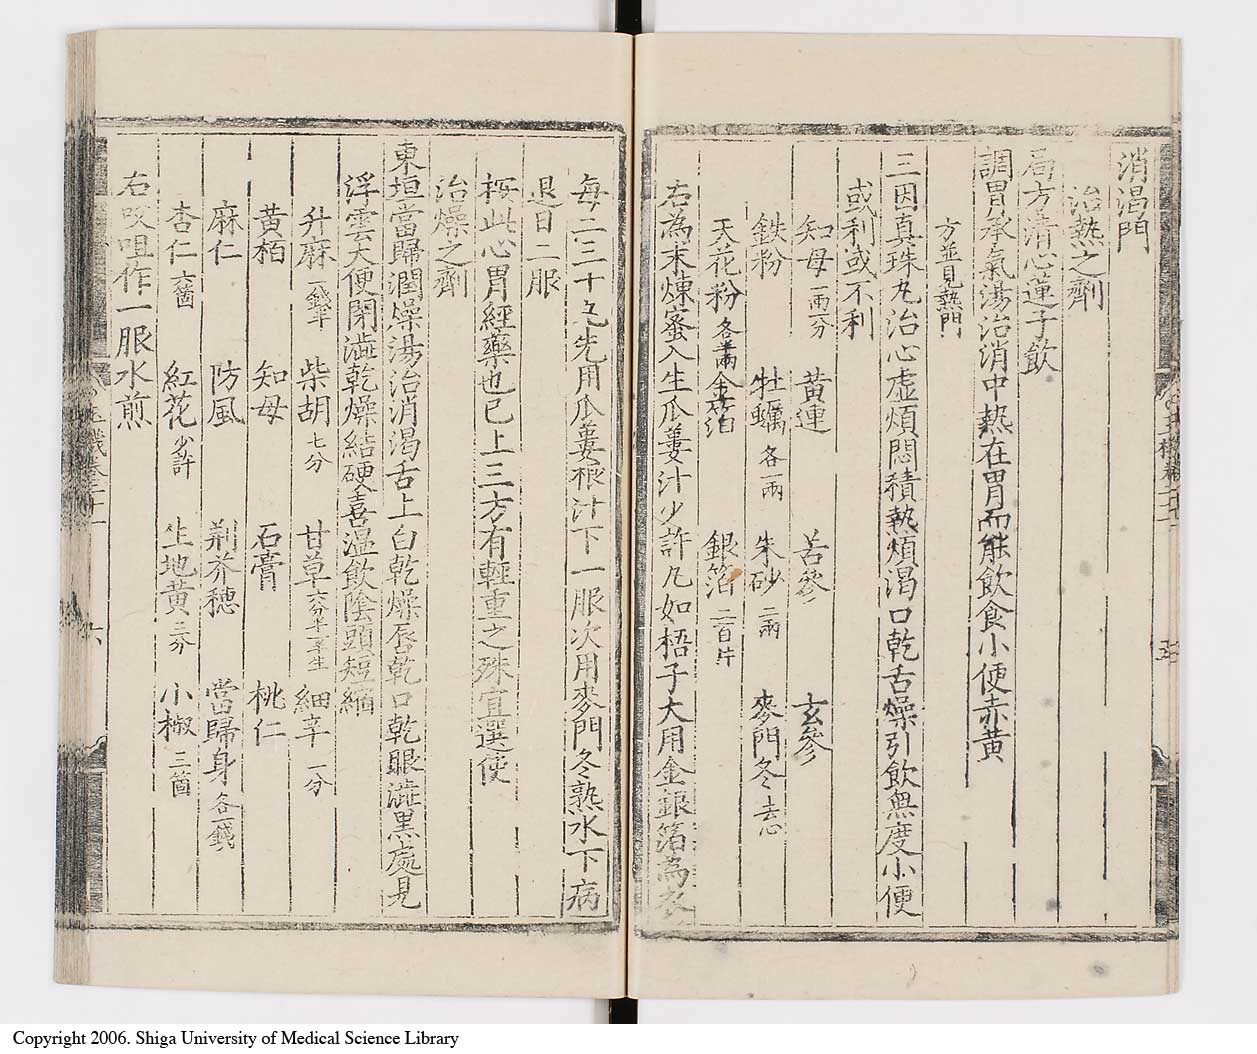 消渴門
治熱之劑
局方清心蓮子飲
調胃承氣湯治消中熱在胃而能飲食小便赤黃
方並見熱門
三因真珠丸治心虛煩悶積熱煩渴口乾舌燥引飲無度小便
或利或不利
知母一兩一分 黃連 苦參 玄參
鉄粉 牡蠣各一兩 朱砂二兩 麥門冬去心
天花粉各半兩 金箔 銀箔二百片
右為末煉蜜入生瓜蔞汁少許丸如梧子大用金銀箔為衣
每二三十丸先用瓜蔞根汁下一服次用麥門冬熟水下病
退日二服
按此心胃經藥也已上三方有輕重之殊宜選使
治燥之劑
東垣當歸潤燥湯治消渴舌上白乾燥唇乾口乾眼澁黑處見
浮雲大便閉澁乾燥結硬喜溫飲陰頭短縮
升麻一錢半 柴胡七分 甘草六分半半生 細辛一分
黃柏 知母 石膏 桃仁
麻仁 防風 荆芥穗 當歸身各一錢
杏仁六箇 紅花少許 生地黃二分 小椒三箇
右㕮咀作一服水煎
Copyright 2006. Shiga University of Medical Science Library